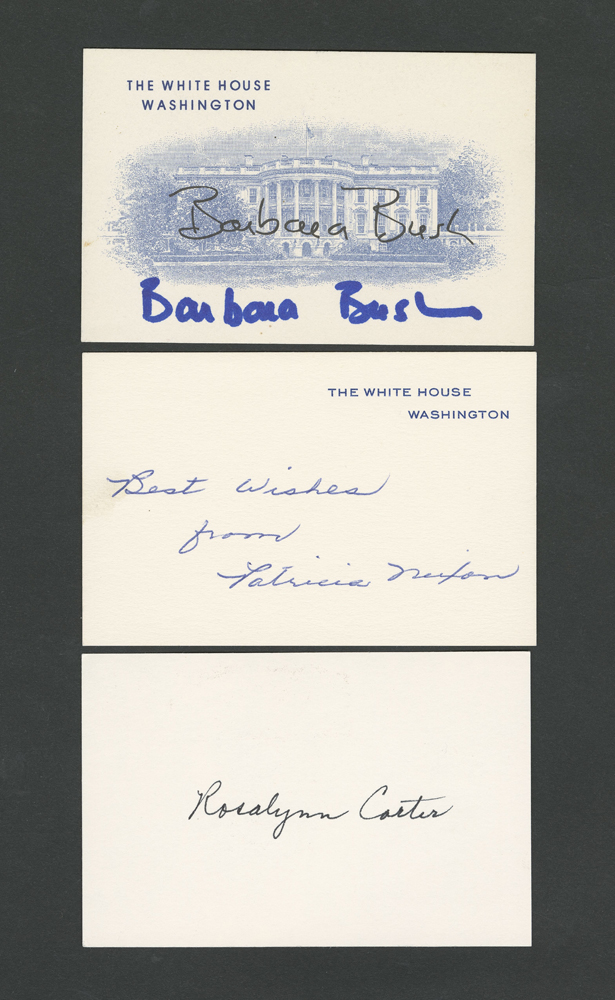 THE WHITE HOUSE
WASHINGTON
Barbara Bush
Barbara Bush
THE WHITE HOUSE
WASHINGTON
Best Wishes
from
Patricia Nixon
Rosalynn Carter